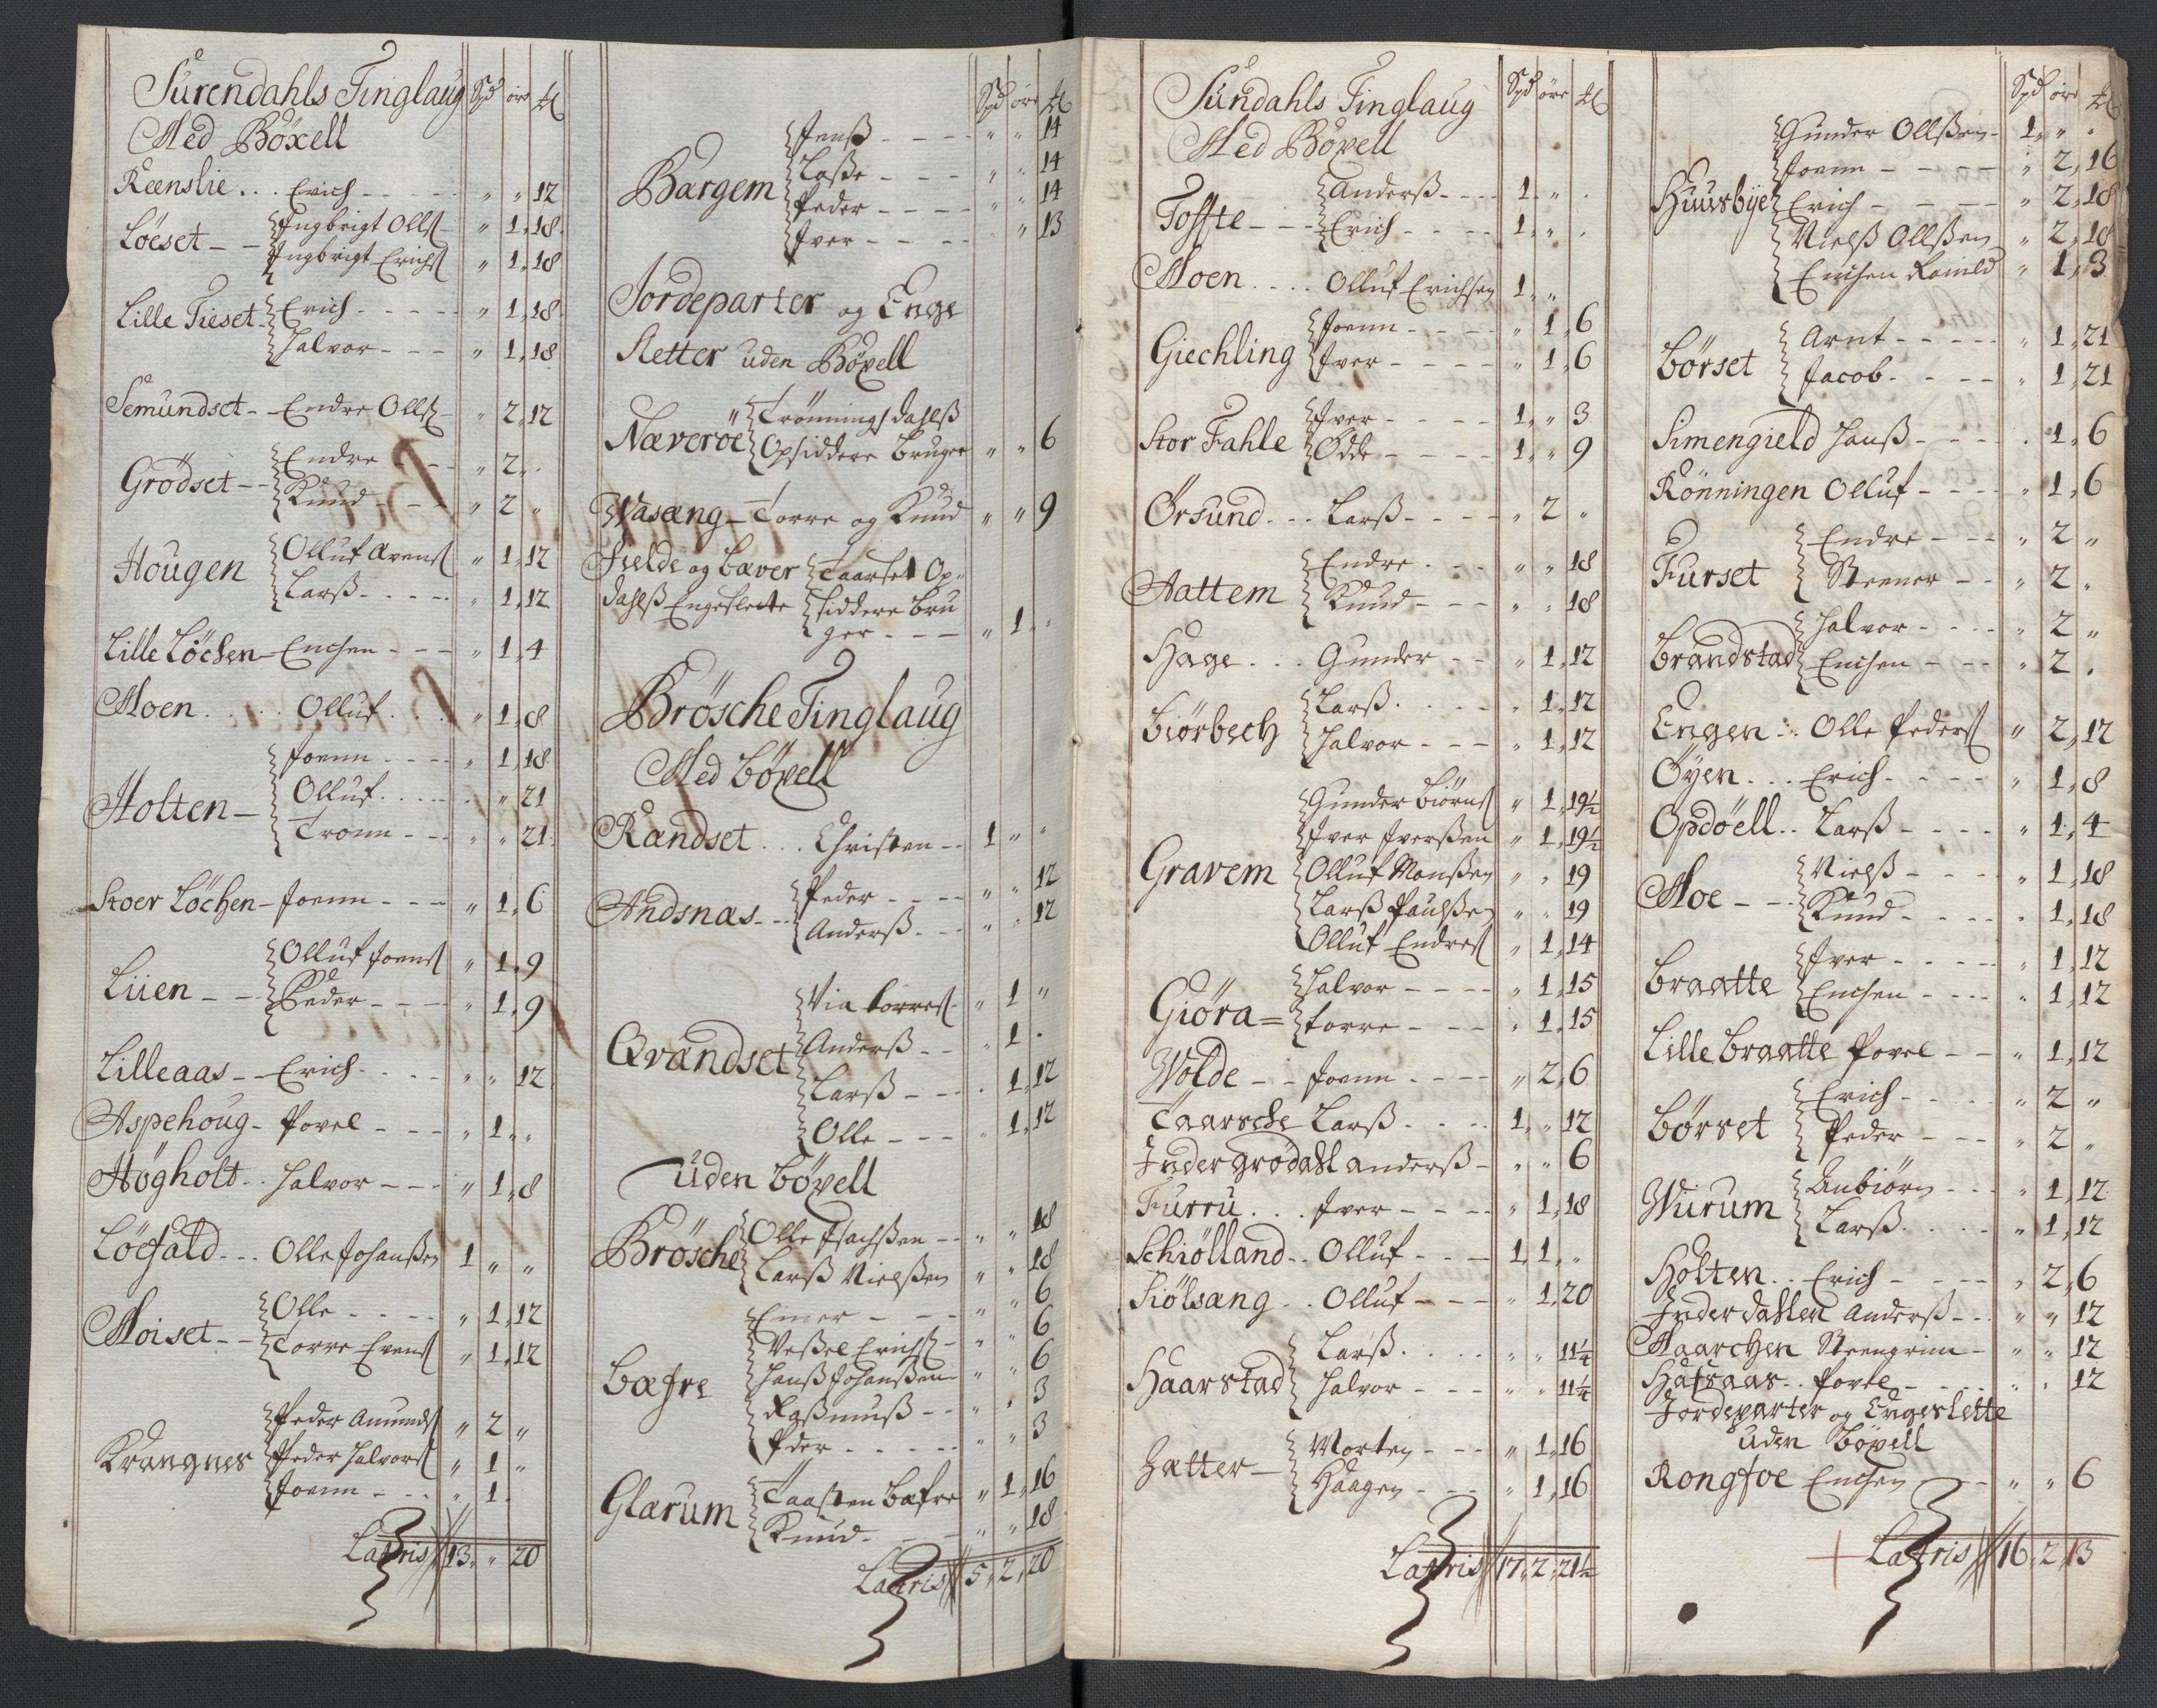 Surendahls Tinglaug Spd øre mk
Med Böxell
Reenslie . . . Erich - - - - " " 12
Löeset - - Ingbrigt Ollß - " 1, 18.
Ingbrigt Erichß " 1, 18
Lille Tieset - Erich - - - - - " 1, 18.
Halvor - - - " 1, 18
Semundset - - Endre Ollß - " 2, 12
Grödset - - Endre - - - " 2, .
Knud - - - " 2 "
Hougen Olluf Arenß " 1, 12
Larß - - - - - " 1, 12
Lille Löchen - Enchen - - - " 1, 4
Moen . . . . Olluf . . . " 1, 8
Holten - Joenn - - - - " 1, 18
Olluf . . . . . " 21
Tronn - - - " " 21.
Stoer Löchen - Joenn - - - " 1, 6
Liien - - Olluf Joenß " 1, 9
Peder - - - - " 1, 9
Lilleaas - - Erich - - - - " " 12
Aspehoug - Povel - - - " 1 " "
Högholt . . Halvor - - - " 1, 8
Löefald - - . Olle Johanßen 1 " "
Moiset - - Olle - - - - " 1, 12
Torre Evenß " 1, 12
Krangnes Peder Amundß " 2 "
Peder Halvorß " 1 "
Joenn - - - " 1 .
Lateris 13 " 20
Spd øre mk
Bærgem Jenß - - - - " " 14
Laße - - - - " " 14
Peder - - - - " " 14
Iver - - - - " 13
Jordeparter og Enge
Sletter uden Böxell
Næveröe Trönningsdahlß
Opsiddere bruger " " 6
Wasæng - Torre og Knud " " 9
Fielde og Bæver Taarset Op-
dahlß Engeslette siddere bru
ger - - - " 1 " "
Brösche Tinglaug
Med Böxell
Randset . . . Christen - - 1 " "
Andsnas - - - Peder - - - - " " 12
Anderß - - - " " 12
Qvandset Via Torreß - " 1 "
Anderß - - - " 1 .
Larß - - - . 1, 12
Olle - - - " 1, 12
uden Böxell
Brösche Olle Isachßen - - " " 18
Larß Nielßen " " 18
Bæfre Einer - - - " " 6
Veßel Erichß - " " 6
Hanß Johanßen - " " 6
Raßmuß - - " " 3
Peder - - - - - " " 3
Glærum Taasten Bæfre " 1, 16
Knud - - - " " 18
Lateris 5, 2, 20
Sundahls Tinglaug Spd øre mk
Med Böxell
Toffte - - - Anderß - - - - 1. " .
Erich - - - - 1. " .
Moen . . . . Olluf Erichsen 1. "
Giechling Joenn - - - - " 1, 6
Iver - - - - - " 1, 6
Stor Fahle Iver - - - - - 1. " 3
Odde - - - - 1. " 9
Örsund . . . Larß - - - - " 2 "
Aattem Endre . - - - " " 18
Knud - - - " " 18
Hage . . . Gunder - - " 1, 12
Biörbech Larß . - - - " 1, 12
Halvor - - - " 1, 12
Gravem Gunder Biörnß " 1, 19½
Iver Iverßen " 1, 19½
Olluf Monßen " " 19
Larß Paulßen " " 19
Olluf Endreß " 1, 14
Giøra = Halvor - - - - " 1, 15
Torre - - - " 1, 15
Wolde - - Joenn . - - - " 2, 6
Taarsche Larß . - - - 1, " 12
Indergrödahl Anderß - " " 6
Furru . . . Iver - - - - " 1, 18
Schiölland . . Olluf - - - - 1, 1, "
Siölsæng . . Olluf - - - " 1, 20
Haarstad Larß . . . . " " 11¼
Halvor - - - " " 11¼
Hatter - Morten - - - " 1, 16
Haagen - - - " 1, 16
Lateris 17, 2, 21½
Spd øre mk
Huusbye Gunder Ollßen - 1. " .
Joenn - - - - " 2, 16
Erich - - - - " 2, 18
Nielß Ollßen " 2, 18
Enchen Ranild " 1, 3
Börset Arnt - - - - - " 1, 21
Jacob . - - - - " 1, 21
Simengield Hanß - - - - . 1, 6
Rönningen Olluf - - - - " 1, 6
Furset Endre - - - " 2 "
Steener - - " 2 "
Brandstad Halvor - - - - " 2 "
Enchen - - - " 2 .
Engen . . . Olle Pederß " 2, 12
Öyen . . . Erich - - - - " 1, 8
Opdöell . . Larß - - - - " 1, 4
Moe - - - Nielß - - - - " 1, 18
Knud - - - - " 1, 18
Braatte Iver - - - - " 1, 12
Enchen - - - - " 1, 12
Lille Braatte Povel - - " 1, 12
Börset Erich - - - - " 2 "
Peder - - - " 2 "
Wirum Anbiörn - - - " 1, 12
Larß . . . . " 1, 12
Holten . . Erich - - - - " 2, 6
Inderdahlen Anderß - - - " " 12
Maarchen Steengrim - " " 12
Hafsaas . . Povel - - - - " " 12
Jordeparter og Engeslette
uden Böxell
Rongfoe Enchen - - - " " 6
Lateris 16, 2, 13